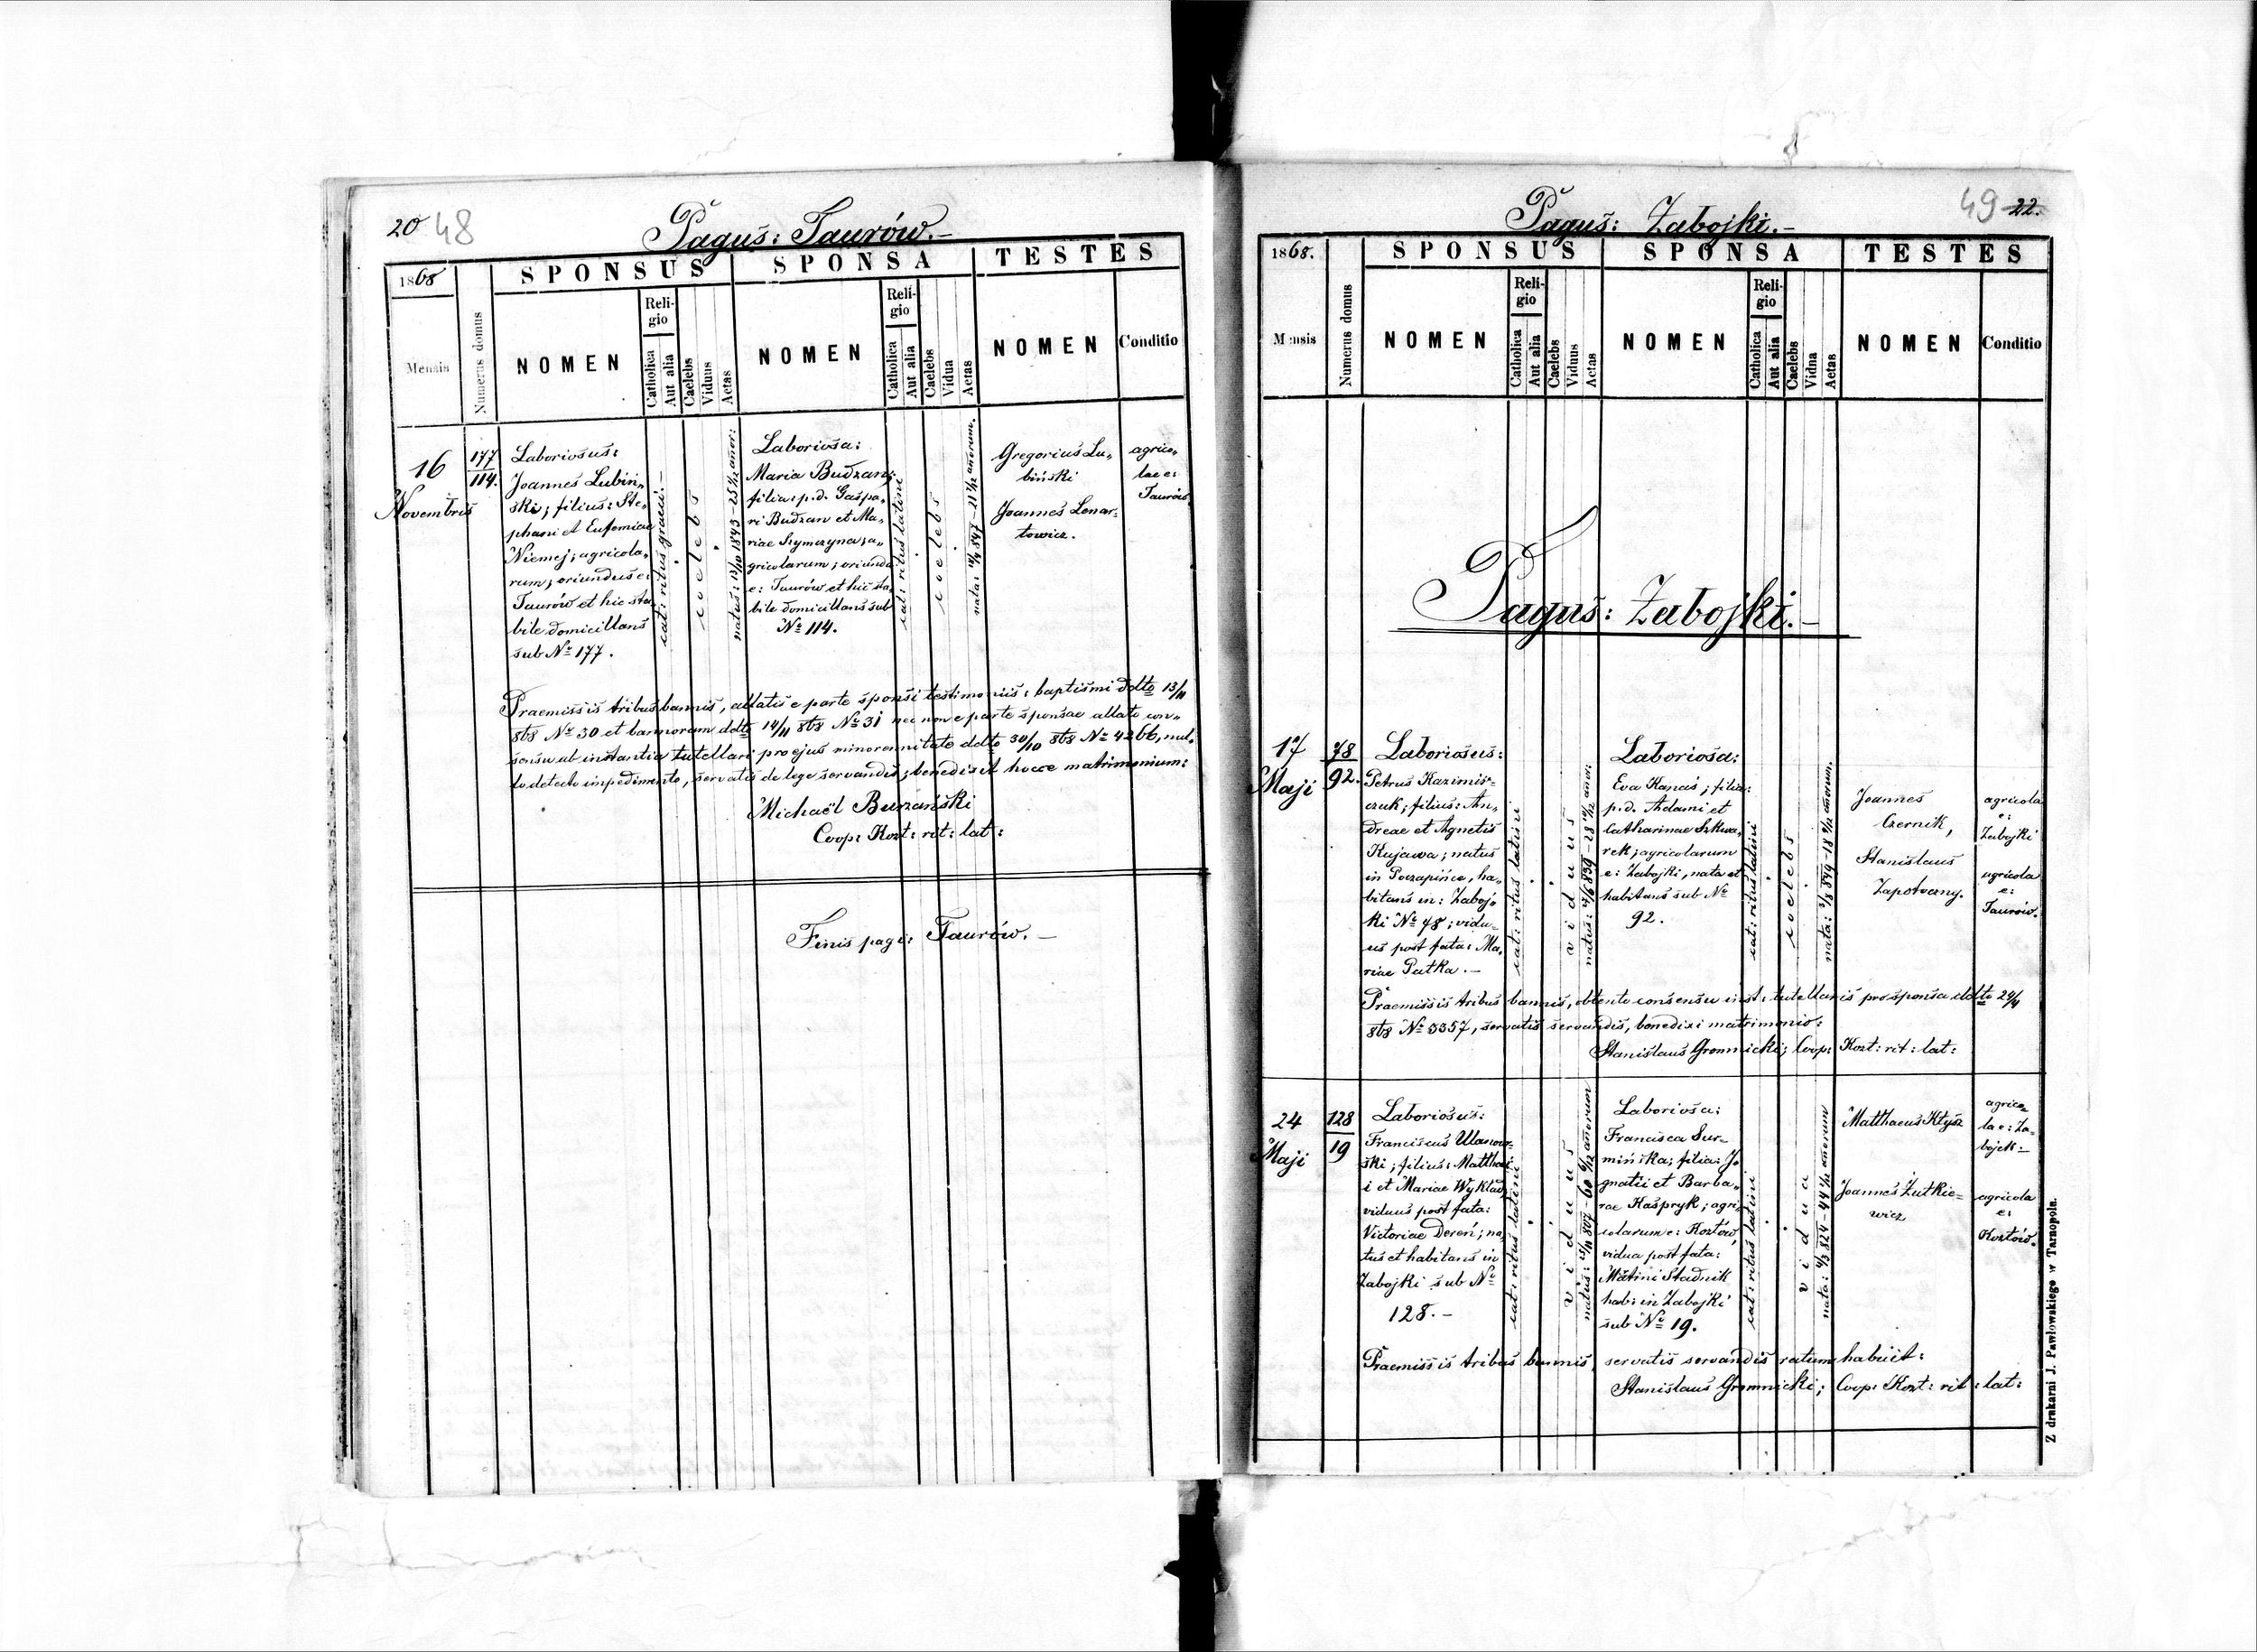 20 48
Paguš: Taurów.–
1868
SPONSUS
SPONSA
TESTES
Mensis
Numerus domus
NOMEN
Religio
Catholica
Aut alia
Caelebs
Viduus
Aetas
NOMEN
Religio
Catholica
Aut alia
Caelebs
Vidua
Aetas
NOMEN
Conditio
16
Novembris
177
114.
Laboriosus:
Joannes Lubiń„
ski; filius: Ste„
phani et Eufemiae
Niemej; agricola„
rum; oriundus e:
Taurów et hic sta„
bile domicilians
sub No 177.
cat: ritus graeci.–
coelebs
natus: 13/10 1843 - 25 1/12 anor:
Laboriosa:
Maria Budzan;
filia: p.d. Gaspa„
ri Budzan et Ma„
riae Szymczyna; a„
gricolarum; oriunda
e: Taurów et hic sta„
bile domicilians sub
No 114.
cat: ritus latini
coelebs
anorum.
Gregorius Lu„
biński
Joannes Lenar„
towicz.
agrico„
lae e:
Taurów
Praemissis tribus bannis, allatis e parte sponsi testimoniis: baptismi ddto 13/11
868 No 30 et bannorum ddto 14/11 868 No 31 nec non e parte sponsae allato con„
sensu ab instantia tutellari pro ejus minorennitate ddto 30/10 868 No 4266, nul„
lo detecto impedimento, servatis de lege servandis; benedixit hocce matrimonium:
Michaël Burzański
Coop: Kozt: rit: lat:
Finis pagi: Taurów.–
49 22.
Paguš: Zabojki.–
1868.
SPONSUS
SPONSA
TESTES
Mensis
Numerus domus
NOMEN
Religio
Catholica
Aut alia
Caelebs
Viduus
Aetas
NOMEN
Religio
Catholica
Aut alia
Caelebs
Vidua
Aetas
NOMEN
Conditio
Paguš: Zabojki.–
17
Maji
78
92.
Laboriosus:
Petrus Kazimis„
czuk; filius: An„
dreae et Agnetis
Kujawa; natus
in Poczapińce, ha„
bitans in: Zaboj„
ki No 78; vidu„
us post fata: Ma„
riae Patka.–
cat: ritus latini
viduus
anor:
Laboriosa:
Eva Kanas; filia:
p.d. Adami et
Catharinae Szkwa„
rek; agricolarum
e: Zabojki, nata et
habitans sub No
92.
cat: ritus latini
coelebs
anorum.
Joannes
Czernik,
Stanislaus
Zapotoczny.
agricola
e:
Zabojki
agricola
e:
Taurów.
Praemissis tribus bannis, obtento consensu inst: tutellaris pro sponsa ddto 24/4
868 No 3357, servatis servandis, benedixi matrimonio:
Stanislaus Gromnicki; Coop: Kozt: rit: lat:
24
Maji
128
19
Laboriosus:
Franciscus Ulanow„
ski; filius: Matthae„
i et Mariae Wykład;
viduus post fata:
Victoriae Dereń; na„
tus et habitans in
Zabojki sub No
128.–
cat: ritus latini
viduus
natus: 15/11 807 - 60 6/12 anorum
Laboriosa:
Francisca Sur„
mińska; filia: J„
gnatii et Barba„
rae Kaspryk; agri„
colarum e: Kozłów,
vidua post fata:
Mãtini Stadnik
hab: in Zabojki
sub No 19.
cat: ritus latini
vidua
anorum
Matthaeus Kłysz
Joannes Żutkie„
wicz
agrico„
la e: Za„
bojek:–
agricola
e:
Kozłów.
Praemissis tribus bannis, servatis servandis ratum habuit:
Stanislaus Gromnicki; Coop: Kozt: rit: lat:
Z drukarni J. Pawłowskiego w Tarnopolu.